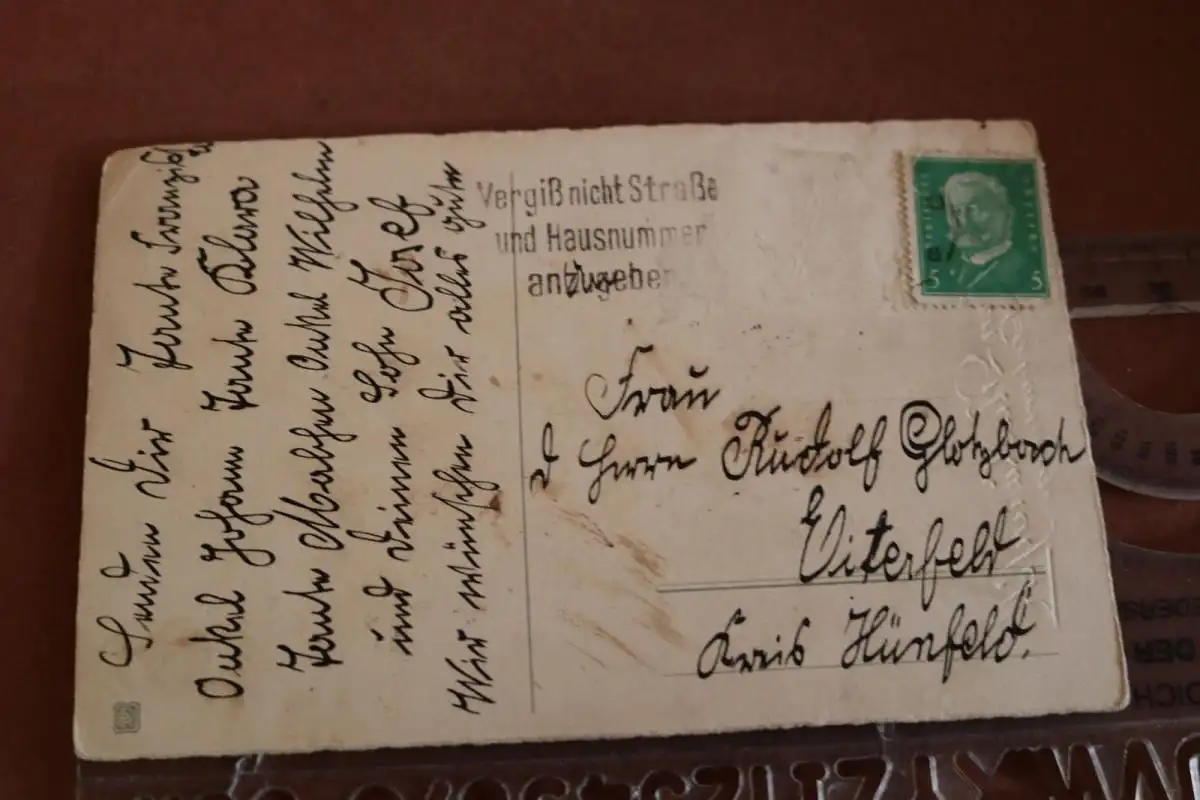 Senden Dir Tante Franziska
Onkel Johann Tante Klara
Tante Onkel Wilhelm
und Deinen Sohn Josef
Wir wünschen Dir alles gute
Vergiß nicht Straße
und Hausnummer
anzugeben
5 5
Frau
d Herrn Rudolf Glotzbach
Eiterfeld
Kreis Hünfeld.
DER